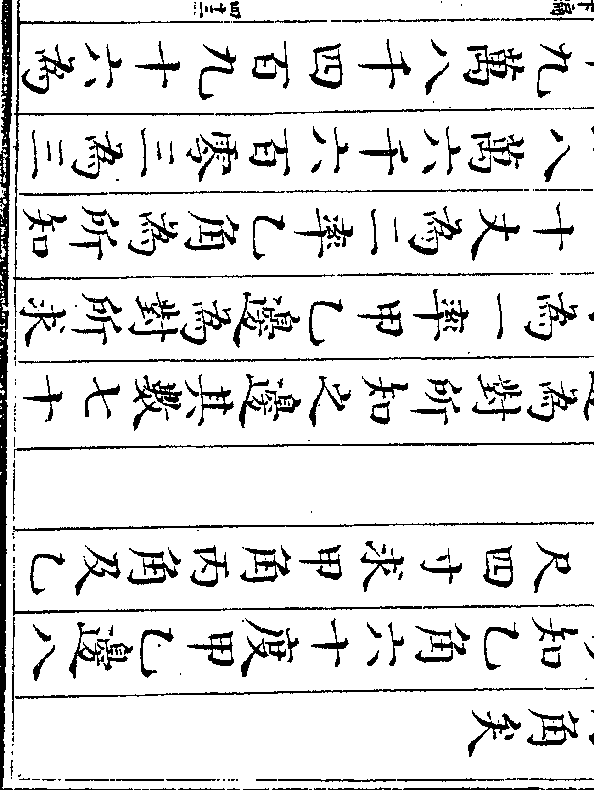 角矣
知乙角六十度甲乙邊八
尺四寸求甲角丙角及乙
為對所知之邊其數七十
為一率甲乙邊為對所求
十丈為二率乙角為所知
八萬六千六百零三為三
九萬八千四百九十六為
下編 四十三